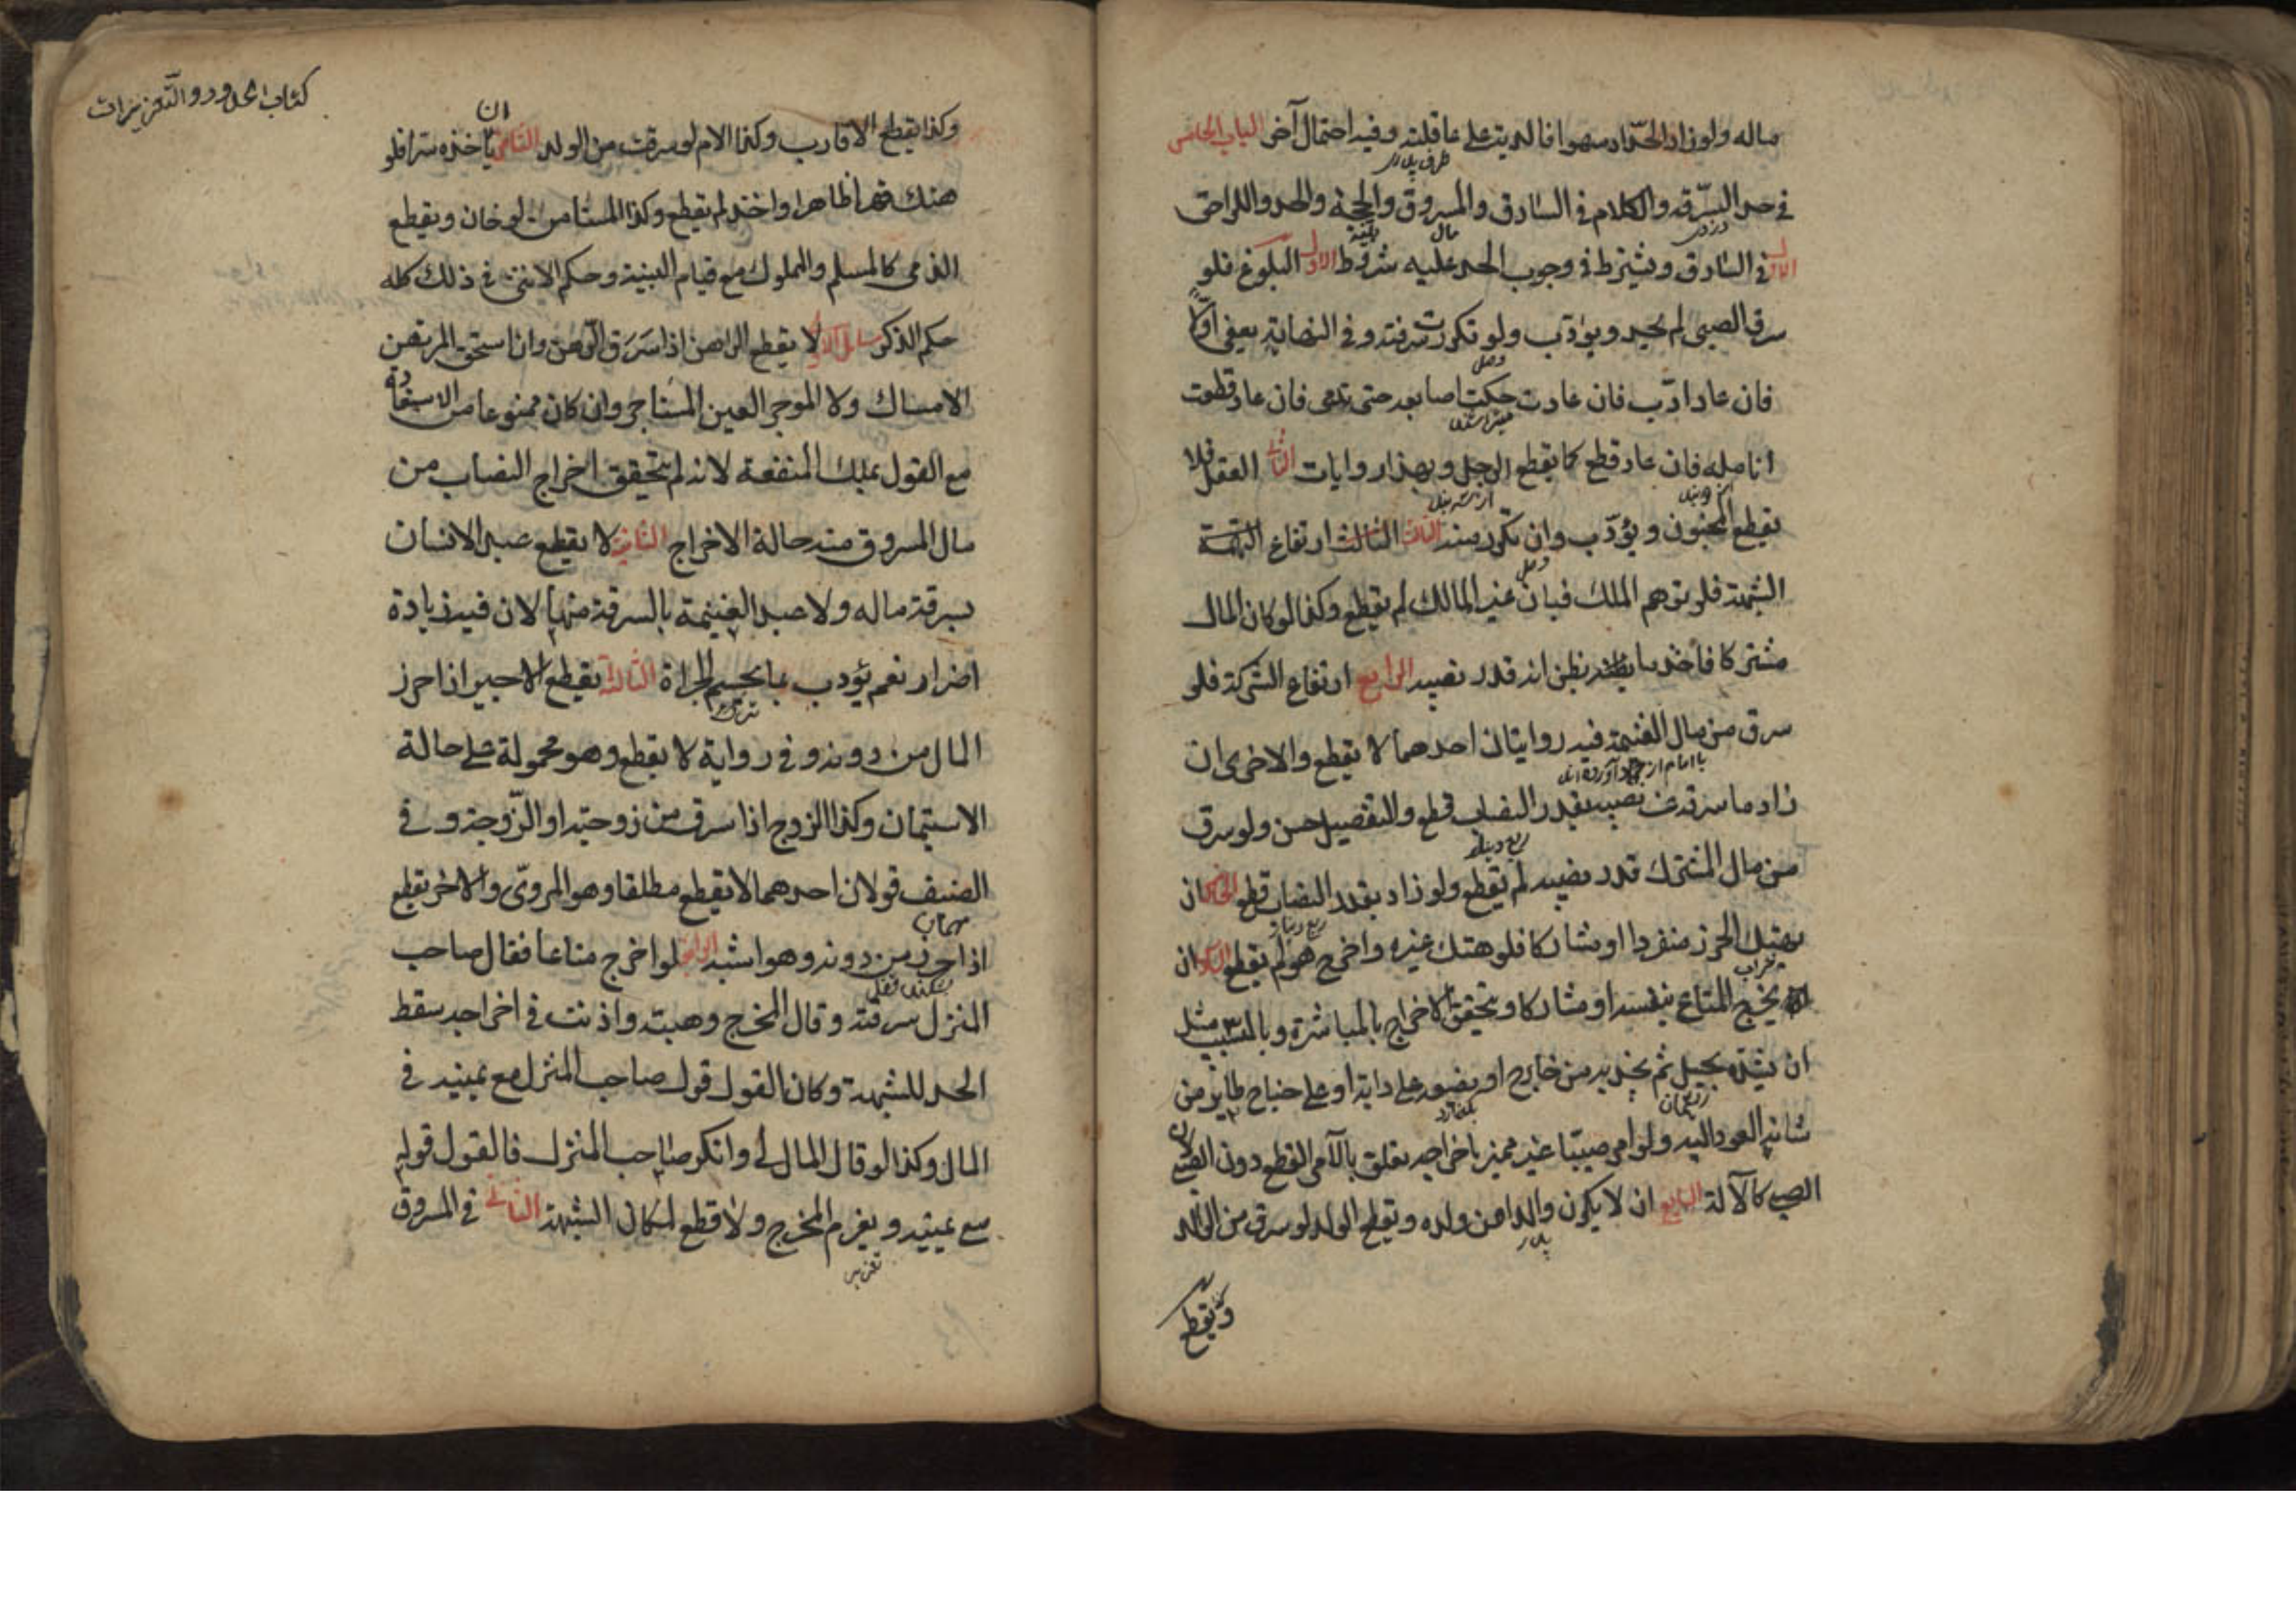 ماله ولو زاد الحداد سهوا فالدية على عاقلته وفيه احتمال آخر الباب الخامس
طرف پدری
في حد السرقة والكلام في السارق والمسروق والحجة والحد واللواحق
دزدی مال بینه
الاول في السارق ويشترط في وجوب الحد عليه شروط الاول البلوغ فلو
سرق الصبي لم يحد ويؤدب ولو تكررت سرقته وفي النهاية يعفى اولا
فان عاد ادب فان عادت حكت اصابعه حتى تدمى فان عاد قطعت
انامله فان عاد قطع كما يقطع الرجل وبهذا روايات الثاني العقل فلا
يقطع المجنون ويؤدب وان تكرر منه الثالث الثالث ارتفاع التهمة
الشبهة فلو توهم الملك فبان غير المالك لم يقطع وكذا لو كان المال
مشتركا فاخذ ما يظن انه قدر نصيبه الرابع ارتفاع الشركة فلو
سرق من مال الغنيمة فيه روايتان احدهما لا يقطع والاخرى ان
زاد ما سرقه عن نصيبه بقدر النصاب قطع والتفصيل حسن ولو سرق
ربع دينار
من مال المشترك قدر نصيبه لم يقطع ولو زاد بقدر النصاب قطع الخامس ان
ربع دينار
يهتك الحرز منفردا او مشاركا فلو هتك غيره واخرج هو لم يقطع السادس ان
خراب
يخرج المتاع بنفسه او مشاركا ويتحقق الاخراج بالمباشرة وبالتسبيب مثل
ان يشده بحبل ثم يجذبه من خارج او يضعه على دابة او على جناح طاير من
شانه العود اليه ولو امر صبيا غير مميز باخراجه تعلق بالآمر القطع دون الصبي لان
الصبي كالآلة السابع ان لا يكون والدا من ولده ويقطع الولد لو سرق من الوالد
پدر
ويقطع
كتاب الحدود والتعزيرات
وكذا يقطع الاقارب وكذا الام لو سرقت من الولد الثامن ان ياخذه سرا فلو
هتك قهرا ظاهرا واخذ لم يقطع وكذا المستامن لو خان ويقطع
الذمي كالمسلم والمملوك مع قيام البينة وحكم الانثى في ذلك كله
حكم الذكر مسائل الاولى لا يقطع الراهن اذا سرق الرهن وان استحق المرتهن
الامساك ولا الموجر العين المستاجر وان كان ممنوعا من الاستعادة
مع القول بملك المنفعة لانه لم يتحقق اخراج النصاب من
مال المسروق منه حالة الاخراج الثانية لا يقطع عبد الانسان
بسرقة ماله ولا عبد الغنيمة بالسرقة منها لان فيه زيادة
اضرار نعم يؤدب بما يحسم الجراة الثالثة يقطع الاجير اذا احرز
المال من دونه وفي رواية لا يقطع وهو محمولة على حالة
الاستيمان وكذا الزوج اذا سرق من زوجته او الزوجة وفي
الضيف قولان احدهما لا يقطع مطلقا وهو المروى والاخر يقطع
مهمان
اذا احرز من دونه وهو اشبه الرابعة لو اخرج متاعا فقال صاحب
المنزل سرقته وقال المخرج وهبته واذنت في اخراجه سقط
الحد للشبهة وكان القول قول صاحب المنزل مع يمينه في
المال وكذا لو قال المال لي وانكر صاحب المنزل فالقول قوله
مع يمينه ويغرم المخرج ولا قطع لمكان الشبهة الثاني في المسروق